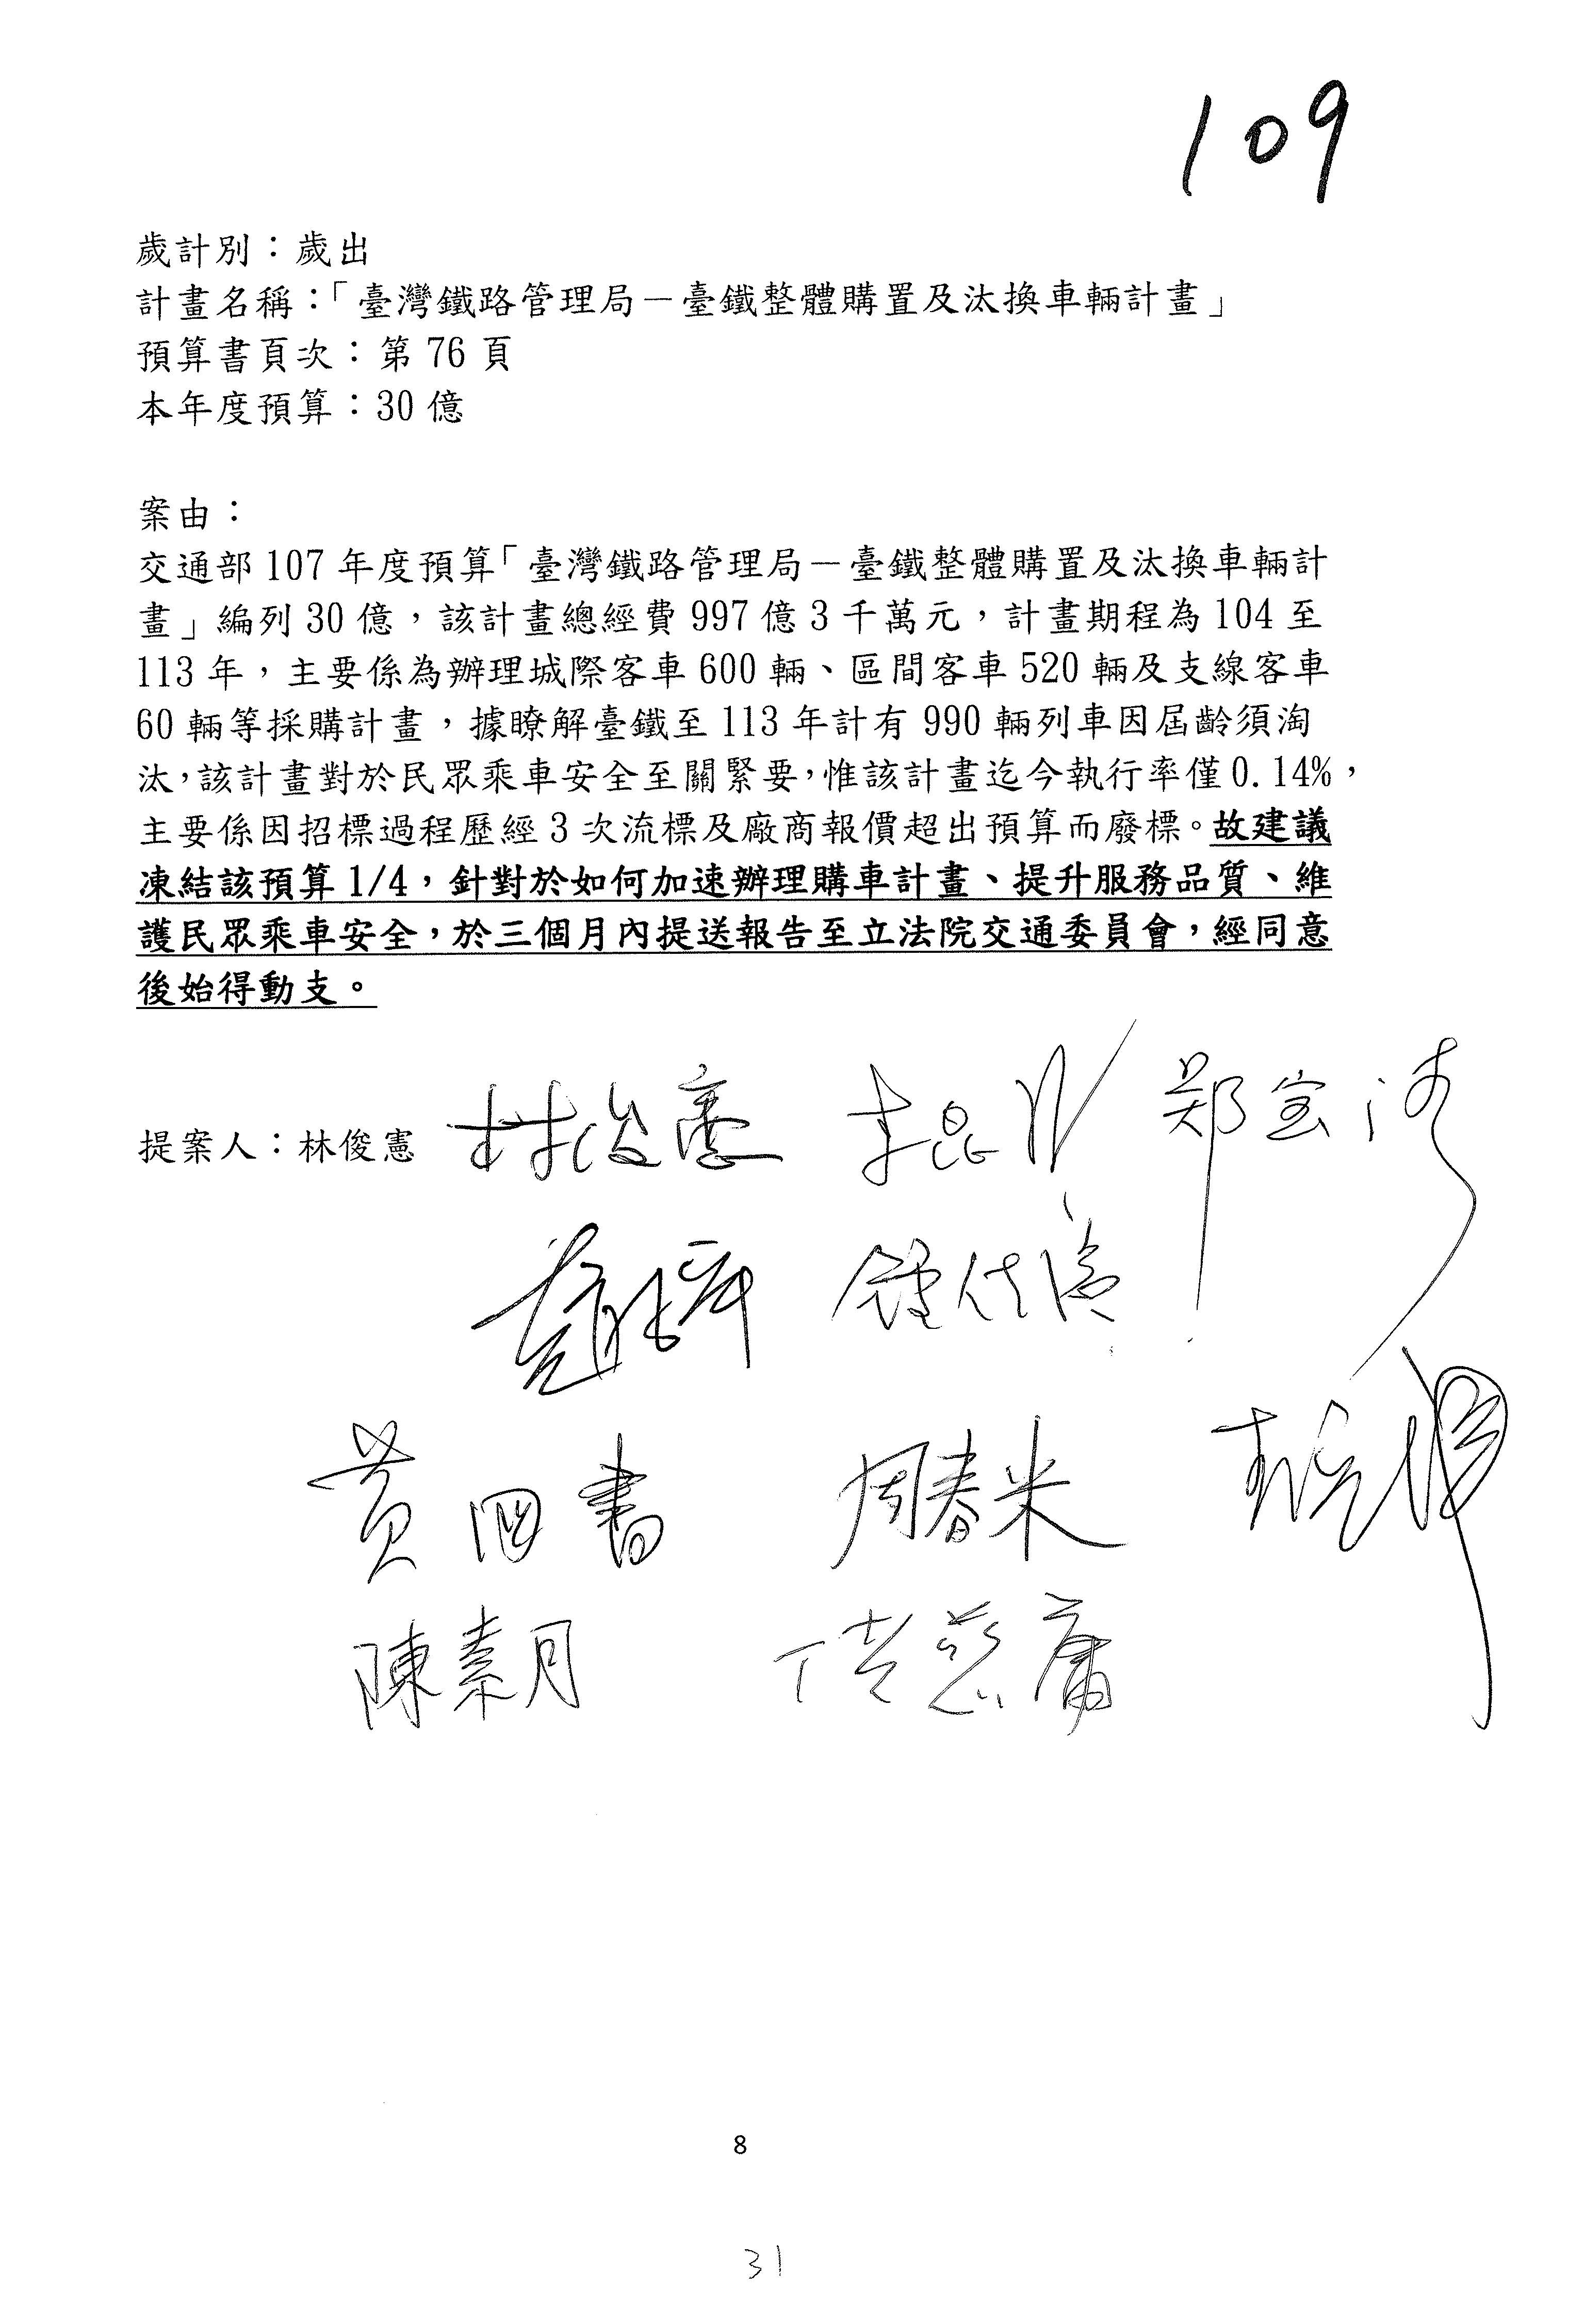 109
歲計別：歲出
計畫名稱：「臺灣鐵路管理局－臺鐵整體購置及汰換車輛計畫」
預算書頁次：第 76 頁
本年度預算：30 億
案由：
交通部 107 年度預算「臺灣鐵路管理局－臺鐵整體購置及汰換車輛計
畫」編列 30 億，該計畫總經費 997 億 3 千萬元，計畫期程為 104 至
113 年，主要係為辦理城際客車 600 輛、區間客車 520 輛及支線客車
60 輛等採購計畫，據瞭解臺鐵至 113 年計有 990 輛列車因屆齡須淘
汰，該計畫對於民眾乘車安全至關緊要，惟該計畫迄今執行率僅 0.14%，
主要係因招標過程歷經 3 次流標及廠商報價超出預算而廢標。故建議
凍結該預算 1/4，針對於如何加速辦理購車計畫、提升服務品質、維
護民眾乘車安全，於三個月內提送報告至立法院交通委員會，經同意
後始得動支。
提案人：林俊憲 林俊憲 李昆澤 鄭宝清
鍾佳濱
黃國書 周春米
陳素月
8
31